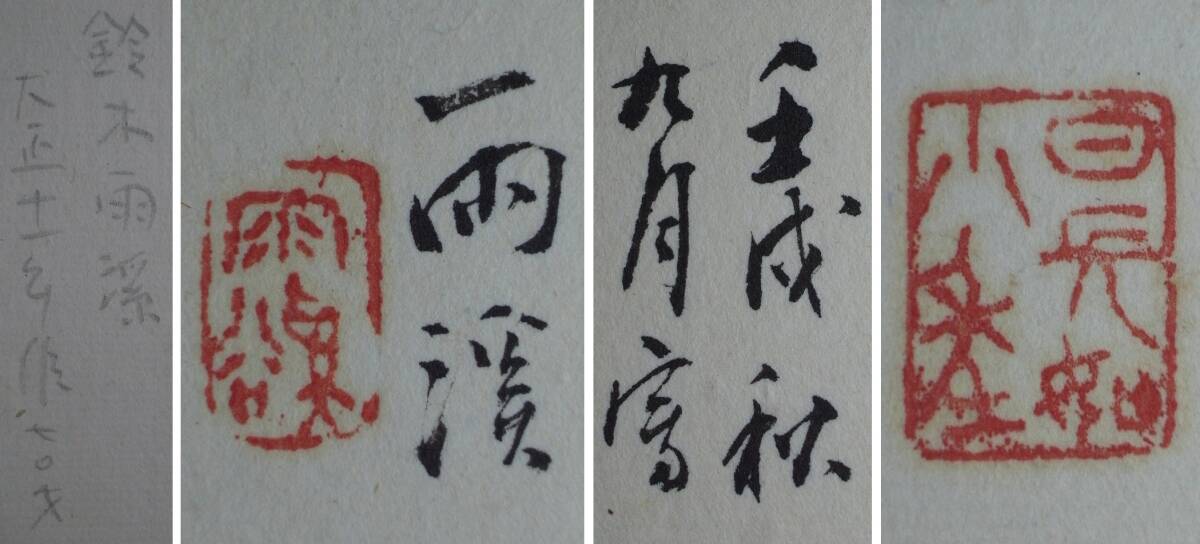 鈴木雨溪
大正十一年作七〇才
雨溪
壬戌秋
九月寫